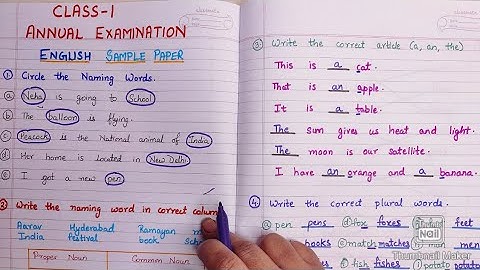 CLASS-1
ANNUAL EXAMINATION
ENGLISH SAMPLE PAPER
① Circle the Naming Words.
ⓐ Neha is going to School
ⓑ The balloon is flying.
ⓒ Peacock is the National animal of India
ⓓ Her home is located in New Delhi
ⓔ I got a new pen
② Write the naming word in correct column
Aarav Hyderabad Ramayan
India festival book
Proper Noun Common Noun
③ Write the correct article (a, an, the)
This is a cat.
That is an apple.
It is a table.
The sun gives us heat and light.
The moon is our satellite.
I have an orange and a banana.
④ Write the correct plural words.
ⓐ pen pens ⓓ fox foxes feet
books ⓓ match matches
ⓔ fish fishes potato
Thumbnail Maker